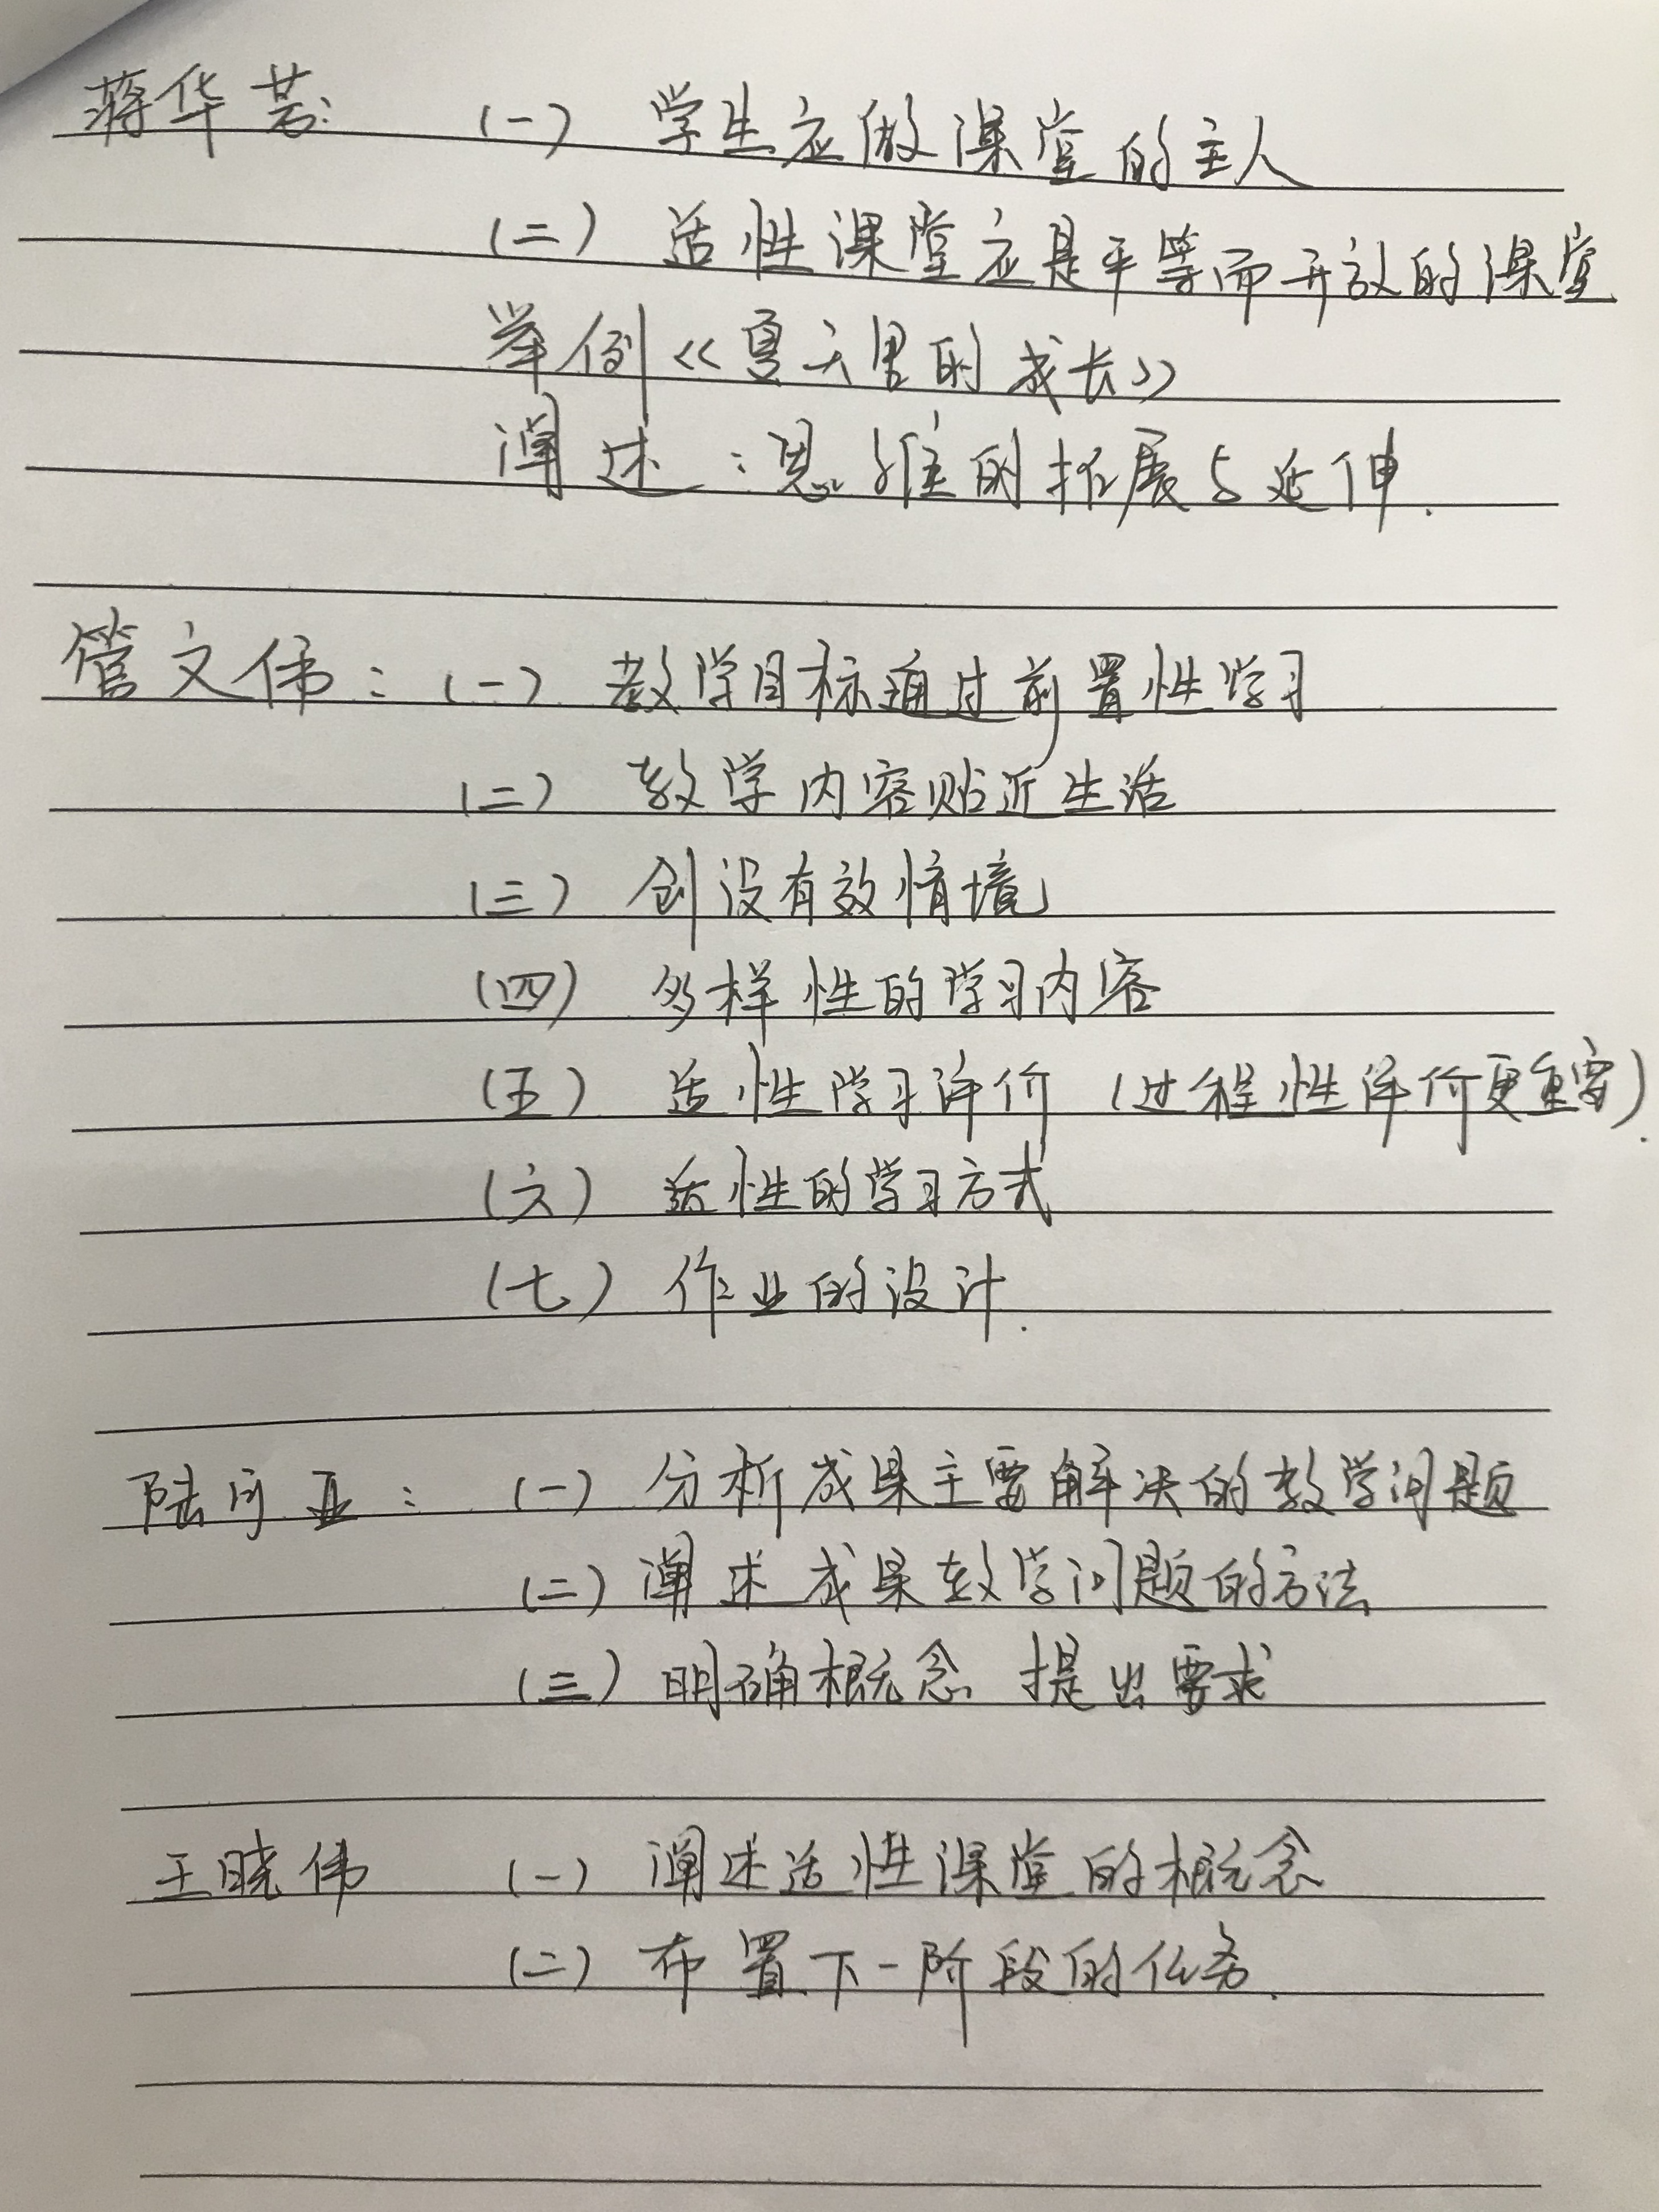 蒋华芳: (一) 学生应做课堂的主人
(二) 活性课堂应是平等而开放的课堂
举例《夏天里的成长》
阐述：思维的拓展与延伸.
管文伟：(一) 教学目标通过前置性学习
(二) 教学内容贴近生活
(三) 创设有效情境
(四) 多样性的学习内容
(五) 活性学习评价 (过程性评价更重要).
(六) 活性的学习方式
(七) 作业的设计.
陆亚：(一) 分析成果主要解决的教学问题
(二) 阐述成果教学问题的方法
(三) 明确概念 提出要求
王晓伟 (一) 阐述活性课堂的概念
(二) 布置下一阶段的任务.